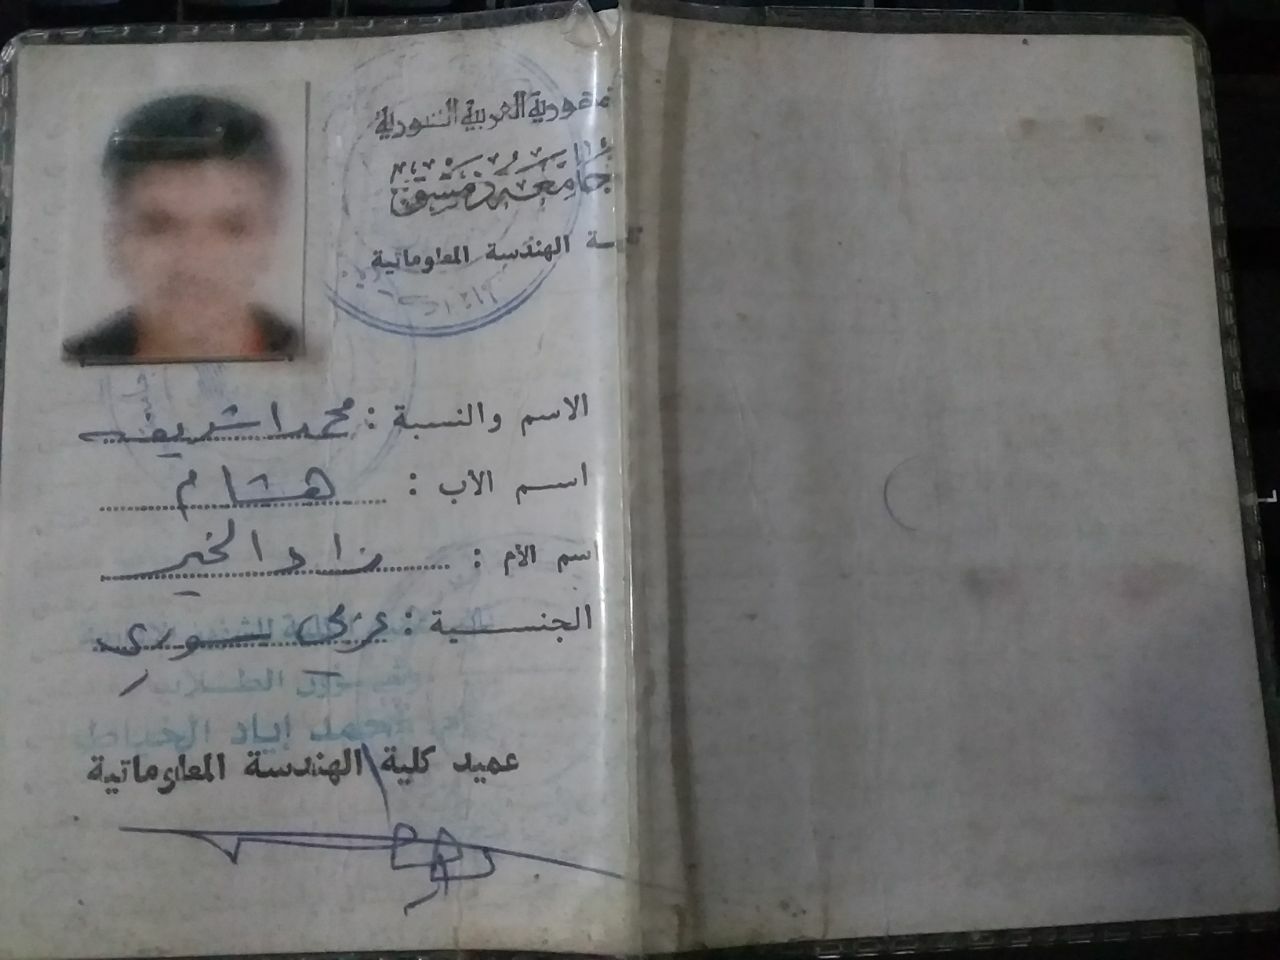 الجمهورية العربية السورية
جامعة دمشق
كلية الهندسة المعلوماتية
الاسم والنسبة : محمد اشريفي
اسم الأب : هشام
اسم الأم : زاد الخير
الجنسية : عربي سوري
شؤون الطلاب
محمد إياد الخياط
عميد كلية الهندسة المعلوماتية